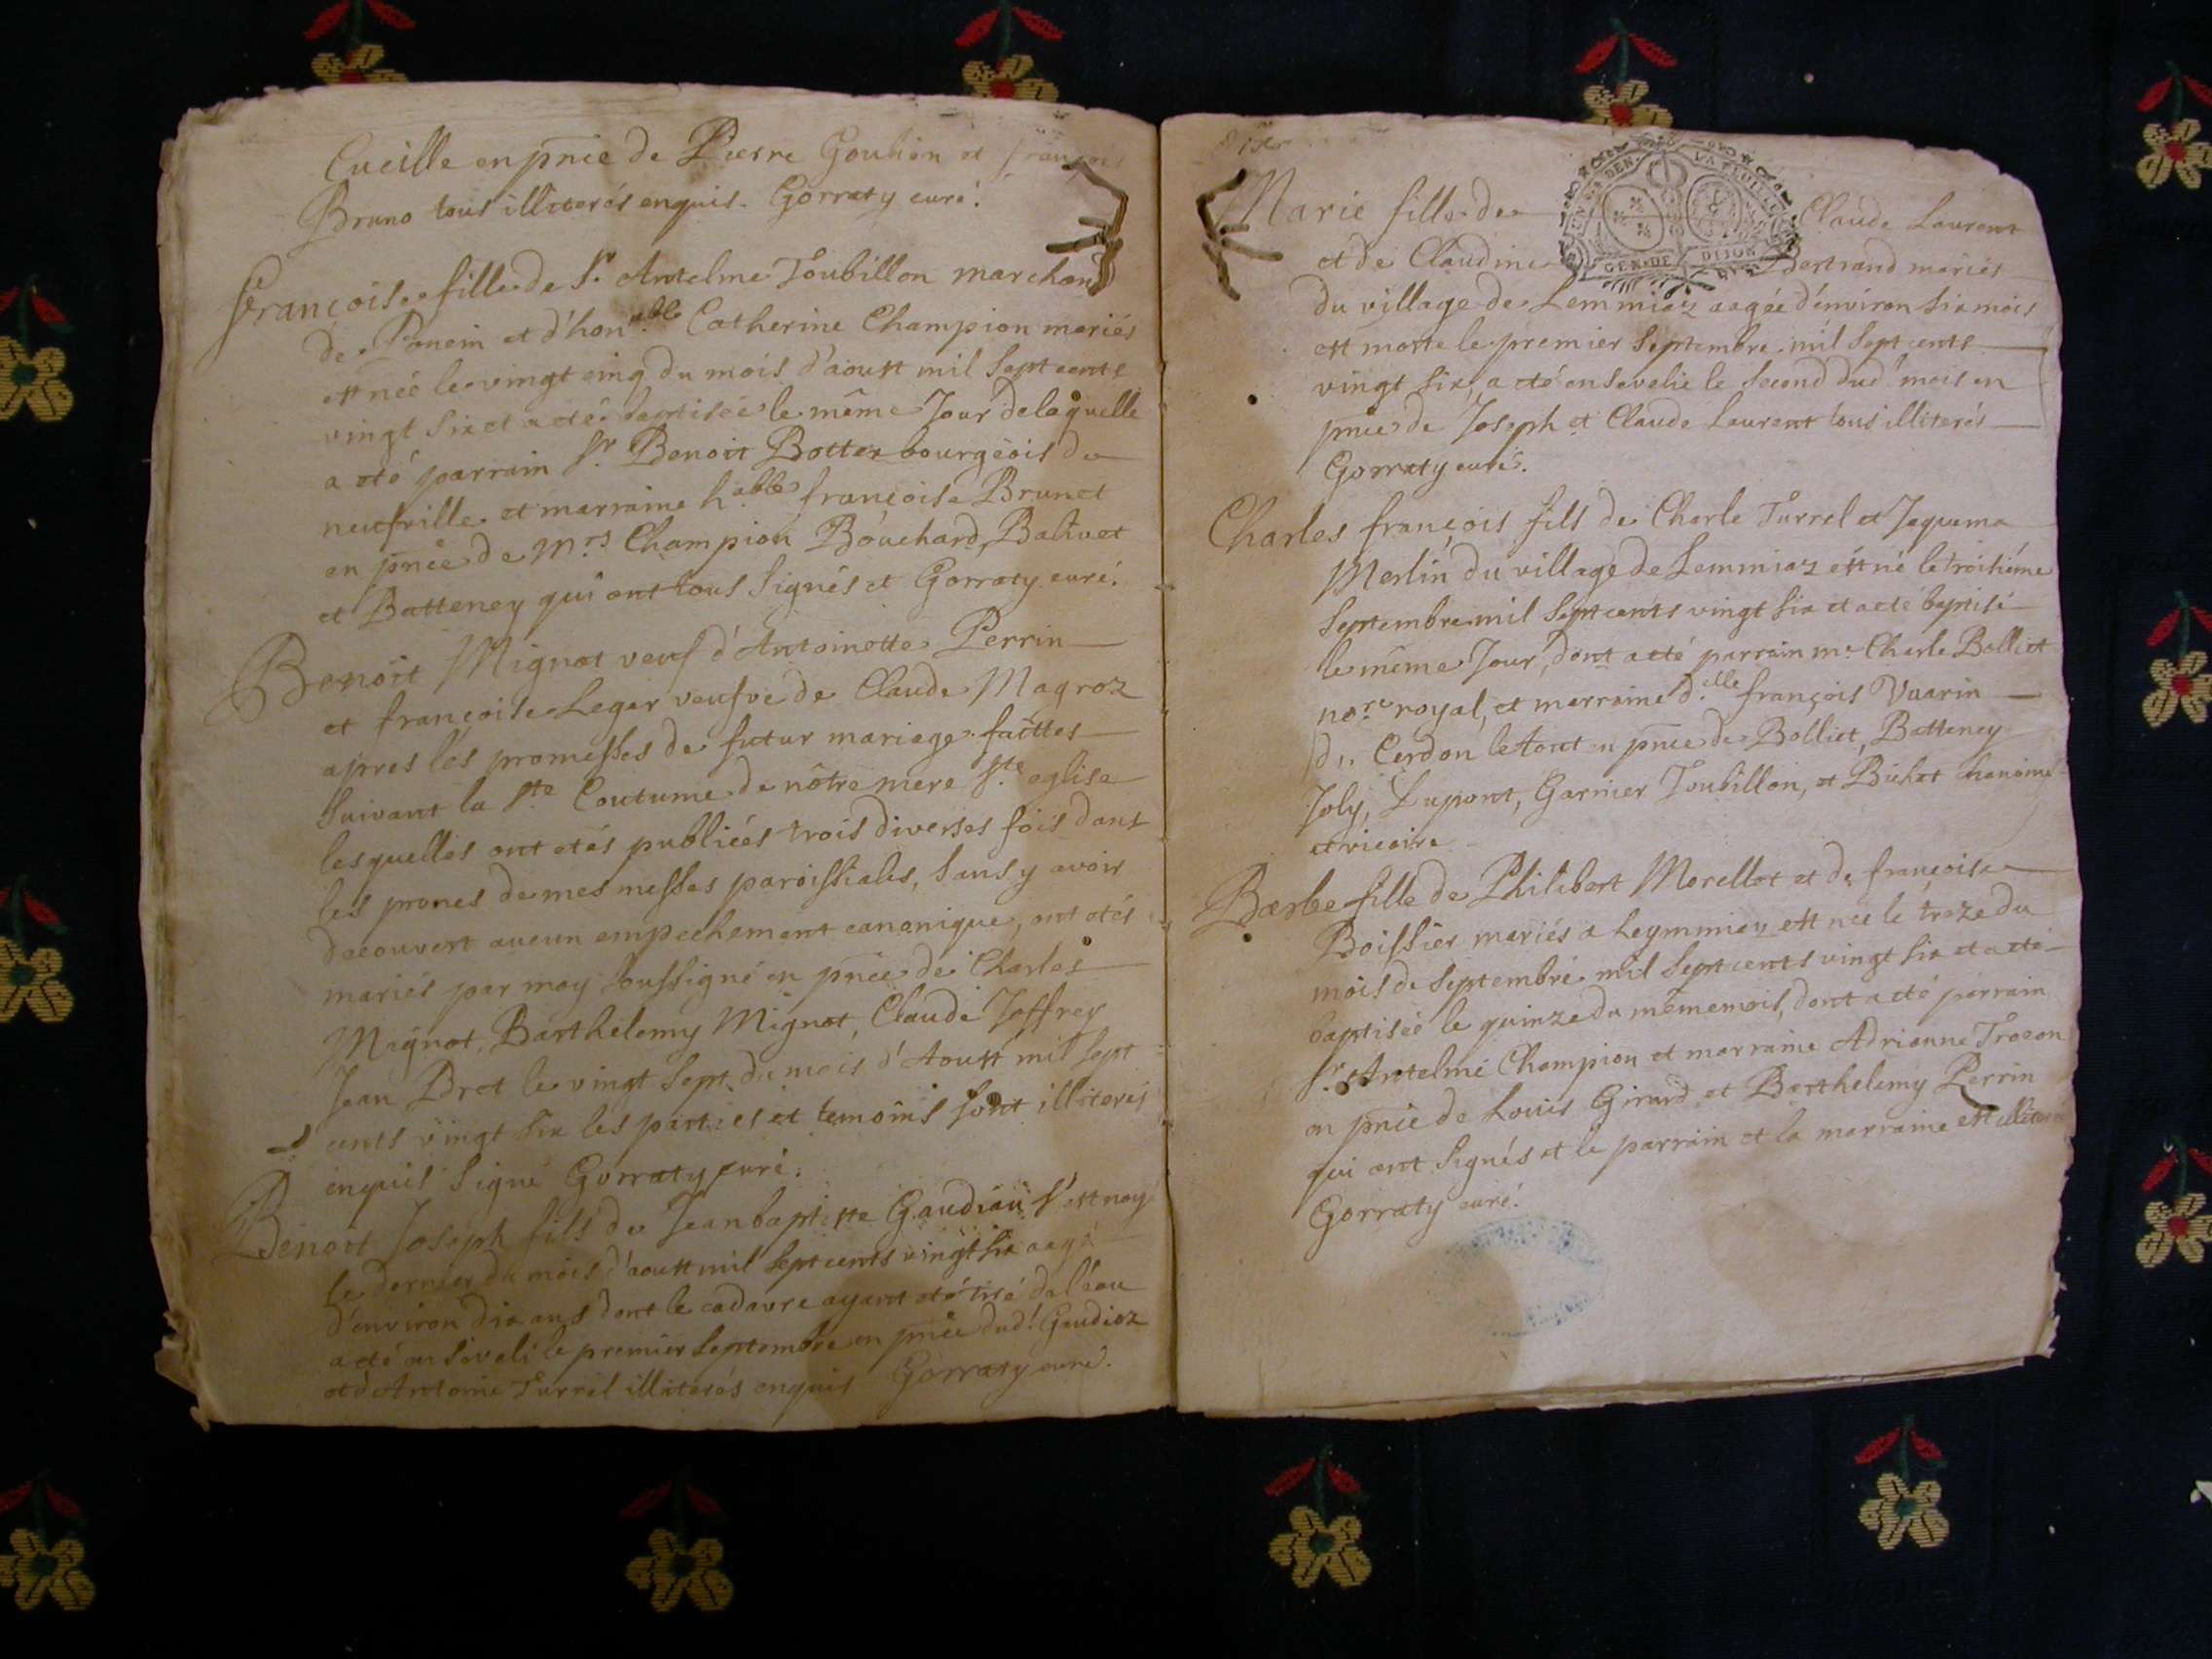 Cueille en pnce de Pierre Gouhon et françois
Bruno tous illiterés enquis. Gorraty curé.
françoise fille de Sr. Antelme Toubillon marchand
de Poncin et d'honable Catherine Champion mariés
est née le vingt cinq du mois d'aoust mil sept cents
vingt six et a eté baptisée le même Jour de laquelle
a eté parrain Sr. Benoit Botter bourgeois de
neufville et marraine h.able françoise Brunet
en pnce de Mrs Champion Bouchard, Balivet
et Batteney qui ont tous signés et Gorraty curé.
Benoit Mignot veuf d'Antoinette Perrin
et françoise Leger veufve de Claude Magroz
apres les promesses de futur mariage faittes
suivant la Ste Coutume de nôtre mere Ste eglise
lesquelles ont etés publiées trois diverses fois dans
les prones de mes messes paroissiales, sans y avoir
decouvert aucun empechement canonique, ont etés
mariés par moy soussigné en pnce de Charles
Mignot, Barthelemy Mignot, Claude Joffrey
Jean Dret le vingt sept du mois d'Aoust mil sept
cents vingt six les parties et temoins sont illiterés
enquis signé Gorraty curé.
Benoit Joseph fils de Jean baptiste Gaudiau s'est noyé
le dernier du mois d'aoust mil sept cents vingt six aagé
d'environ dix ans dont le cadavre ayant eté tiré de l'eau
a eté enseveli le premier septembre en pnce dud! Gaudioz
et d'Antoine Turrel illiterés enquis Gorraty curé.
GEN. DE DIJON
Marie fille de Claude Laurent
et de Claudine Bertrand mariés
du village de Lemmiaz aagée d'environ six mois
est morte le premier septembre mil sept cents
vingt six, a eté ensevelie le second dud! mois en
pnce de Joseph et Claude Laurent tous illiterés
Gorraty curé.
Charles françois fils de Charle Turrel et Jaquema
Merlin du village de Lemmiaz est né le troisiéme
septembre mil sept cents vingt six et a eté baptisé
le même Jour, dont a eté parrain mr. Charle Bolliet
nore royal, et marraine d.elle françois Vuarin
de Cerdon le tout en pnce de Bolliet, Batteney
Joly, Dupont, Garnier Toubillon, et Bichet
et vicaire
Barbe fille de Philibert Morellet et de françoise
Boissier mariés a Leymmiau est née le treze du
mois de septembre mil sept cents vingt six et a eté
baptisée le quinze du même mois, dont a eté parrain
Sr. Antelme Champion et marraine Adrianne Trocon
en pnce de Louis Girard et Barthelemy Perrin
qui ont signés et le parrain et la marraine est
Gorraty curé.